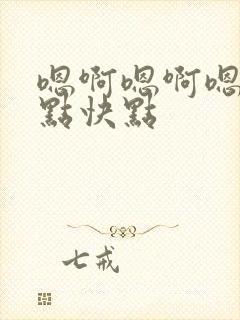 嗯啊嗯啊嗯
點快點
七戒